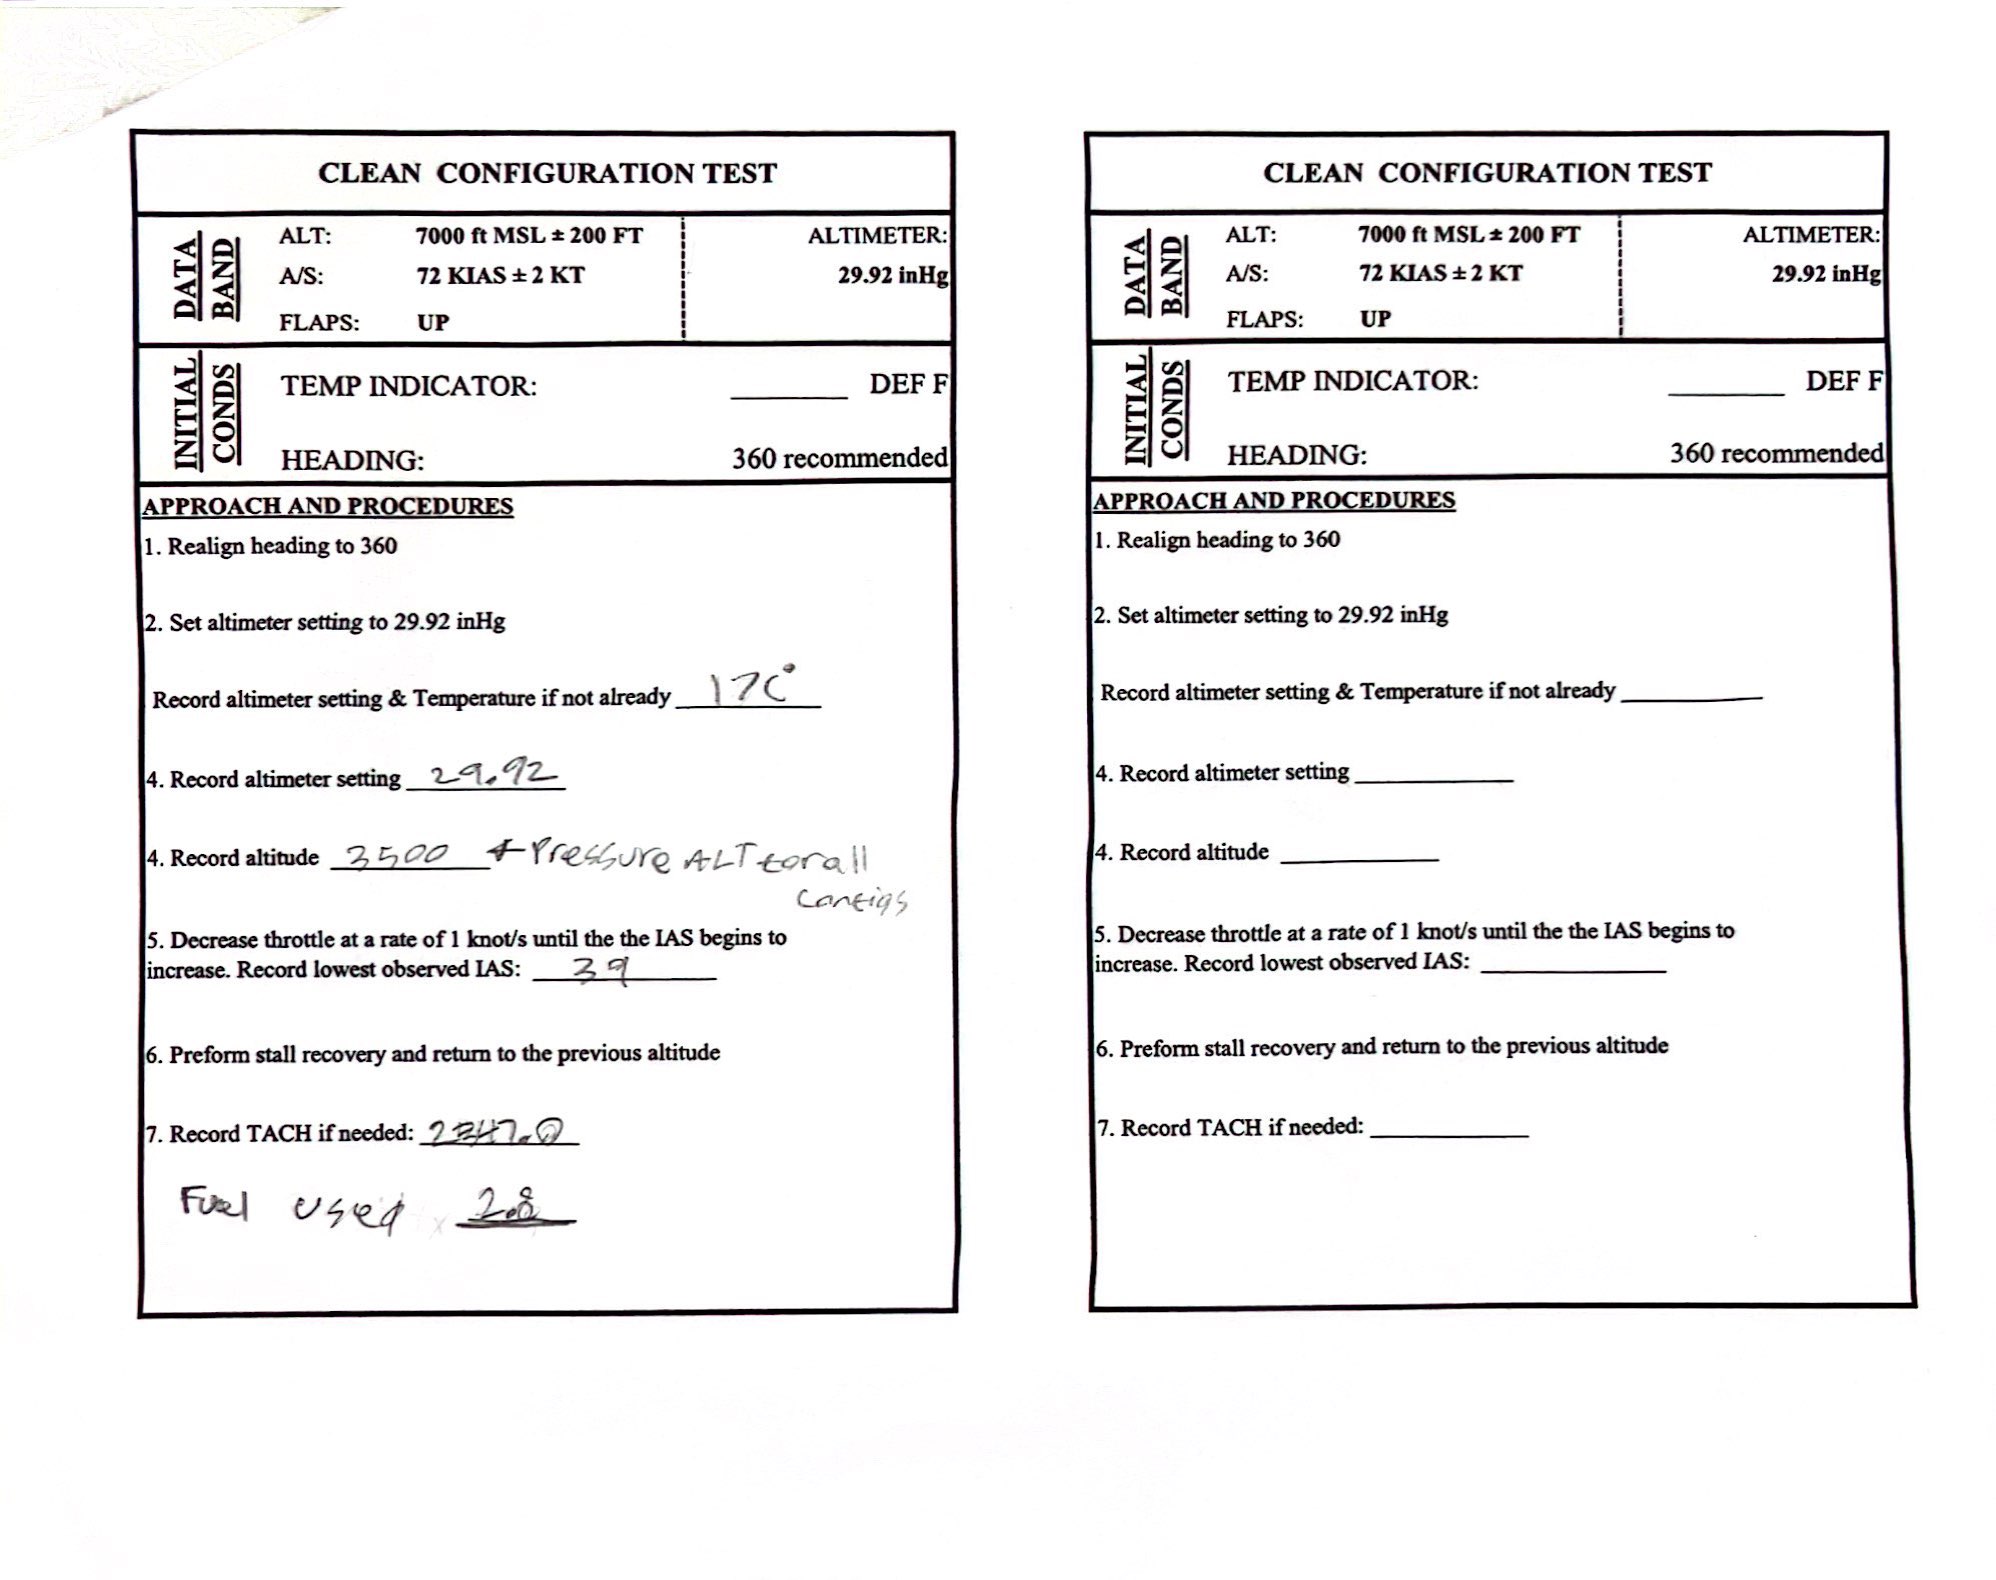 CLEAN CONFIGURATION TEST
DATA BAND
ALT: 7000 ft MSL ± 200 FT ALTIMETER:
A/S: 72 KIAS ± 2 KT 29.92 inHg
FLAPS: UP
INITIAL CONDS
TEMP INDICATOR: ______ DEF F
HEADING: 360 recommended
APPROACH AND PROCEDURES
1. Realign heading to 360
2. Set altimeter setting to 29.92 inHg
Record altimeter setting & Temperature if not already 17C°
4. Record altimeter setting 29.92
4. Record altitude 3500 ← Pressure ALT for all
Configs
5. Decrease throttle at a rate of 1 knot/s until the the IAS begins to
increase. Record lowest observed IAS: 39
6. Preform stall recovery and return to the previous altitude
7. Record TACH if needed: 2347.0
Fuel used 2.8
CLEAN CONFIGURATION TEST
DATA BAND
ALT: 7000 ft MSL ± 200 FT ALTIMETER:
A/S: 72 KIAS ± 2 KT 29.92 inHg
FLAPS: UP
INITIAL CONDS
TEMP INDICATOR: ______ DEF F
HEADING: 360 recommended
APPROACH AND PROCEDURES
1. Realign heading to 360
2. Set altimeter setting to 29.92 inHg
Record altimeter setting & Temperature if not already ______
4. Record altimeter setting ______
4. Record altitude ______
5. Decrease throttle at a rate of 1 knot/s until the the IAS begins to
increase. Record lowest observed IAS: ______
6. Preform stall recovery and return to the previous altitude
7. Record TACH if needed: ______